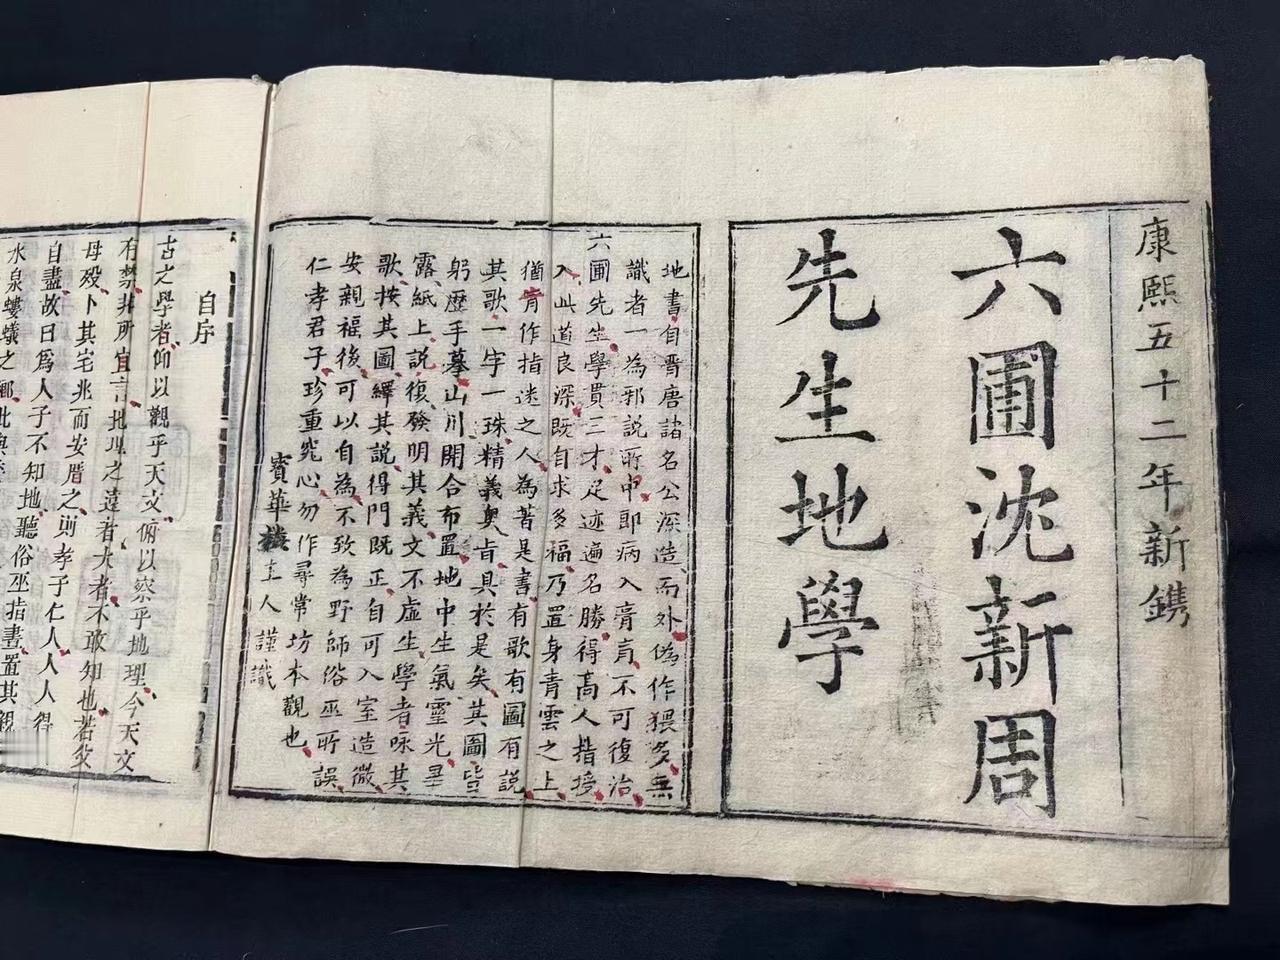 康熙五十二年新鐫
六圃沈新周
先生地學
地書自晋唐諸名公深造而外偽作猥多無
識者一為邪說所中即病入膏肓不可復治
六圃先生學貫三才足迹遍名勝得高人指授
入此道良深既自求多福乃置身青雲之上
猶肯作指迷之人為著是書有歌有圖有說
其歌一字一珠精義奧旨具於是矣其圖皆
躬歷手摹山川開合布置地中生氣靈光畢
露紙上說復發明其義文不虛生學者咏其
歌按其圖繹其說得門既正自可入室造微
安親福後可以自為不致為野師俗巫所誤
仁孝君子珍重究心勿作尋常坊本觀也
寳華樓主人謹識
自序
古之學者仰以觀乎天文俯以察乎地理今天文
有禁非所宜言地理之遠者大者不敢知也若父
母殁卜其宅兆而安厝之則孝子仁人人人得
自盡故曰爲人子不知地聽俗巫指畫置其親
水泉螻蟻之鄉此與